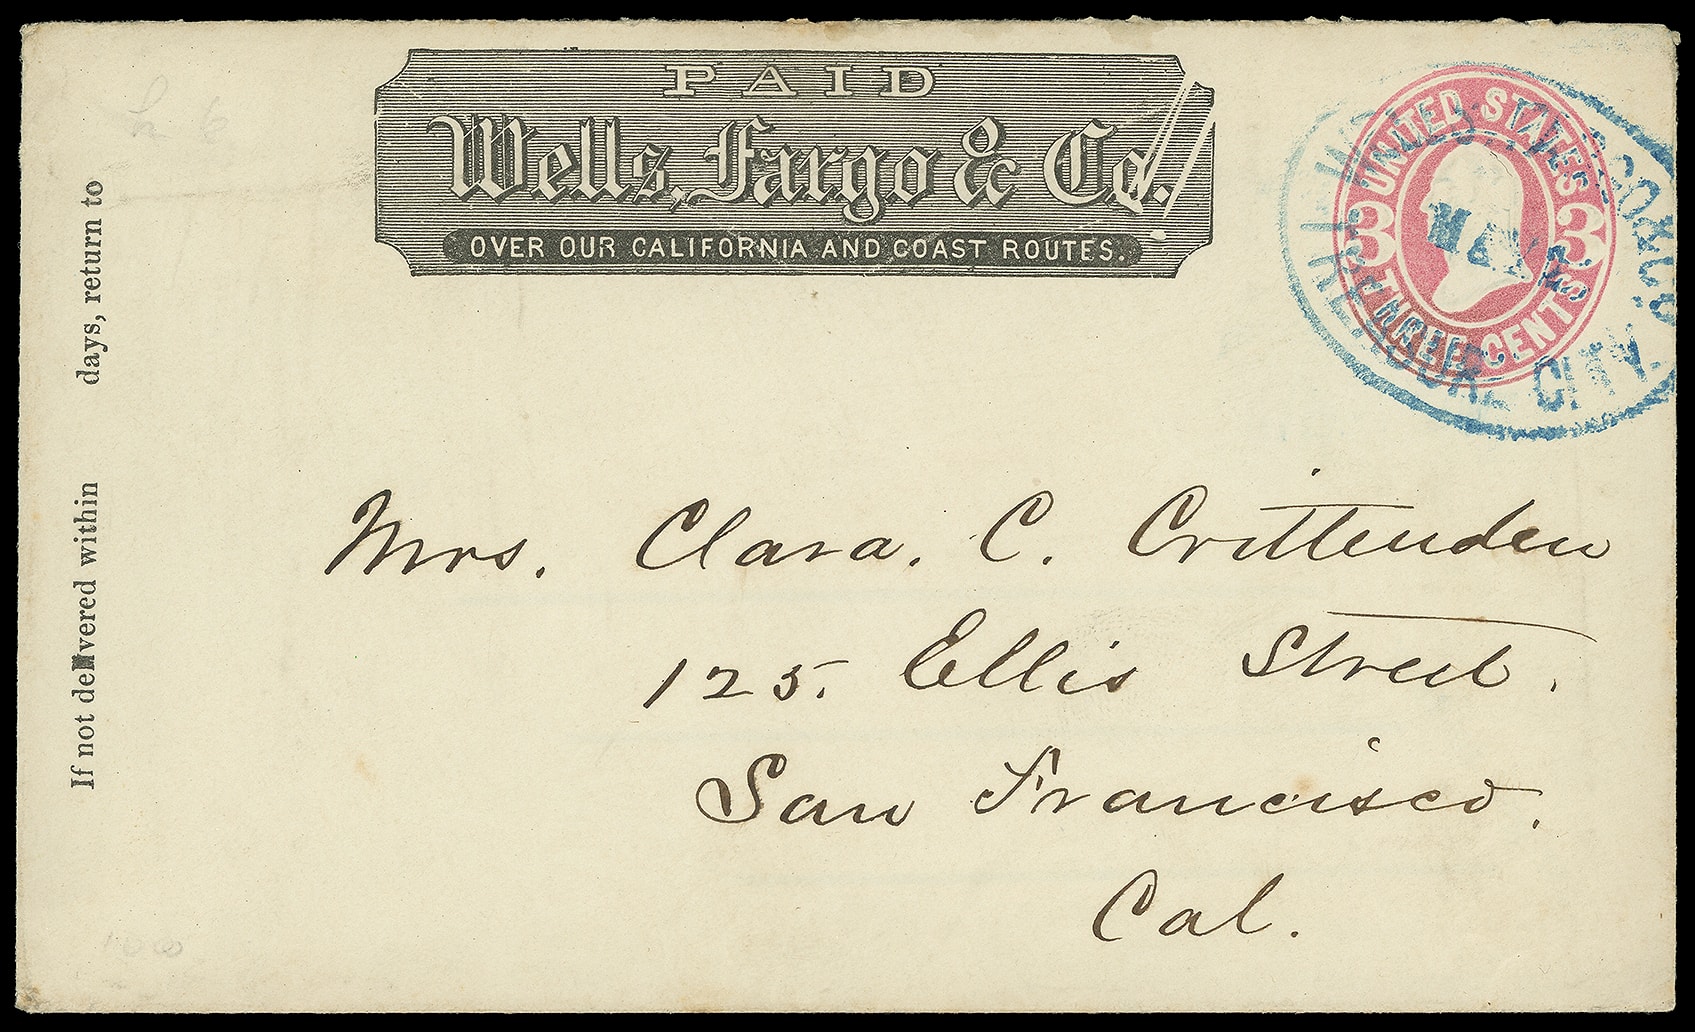 PAID
Wells, Fargo & Co.
OVER OUR CALIFORNIA AND COAST ROUTES.
UNITED STATES
3 3
THREE CENTS
WELLS, FARGO & CO.
MAY
TREASURE CITY.
If not delivered within days, return to
Mrs. Clara. C. Crittenden
125. Ellis Street.
San Francisco.
Cal.